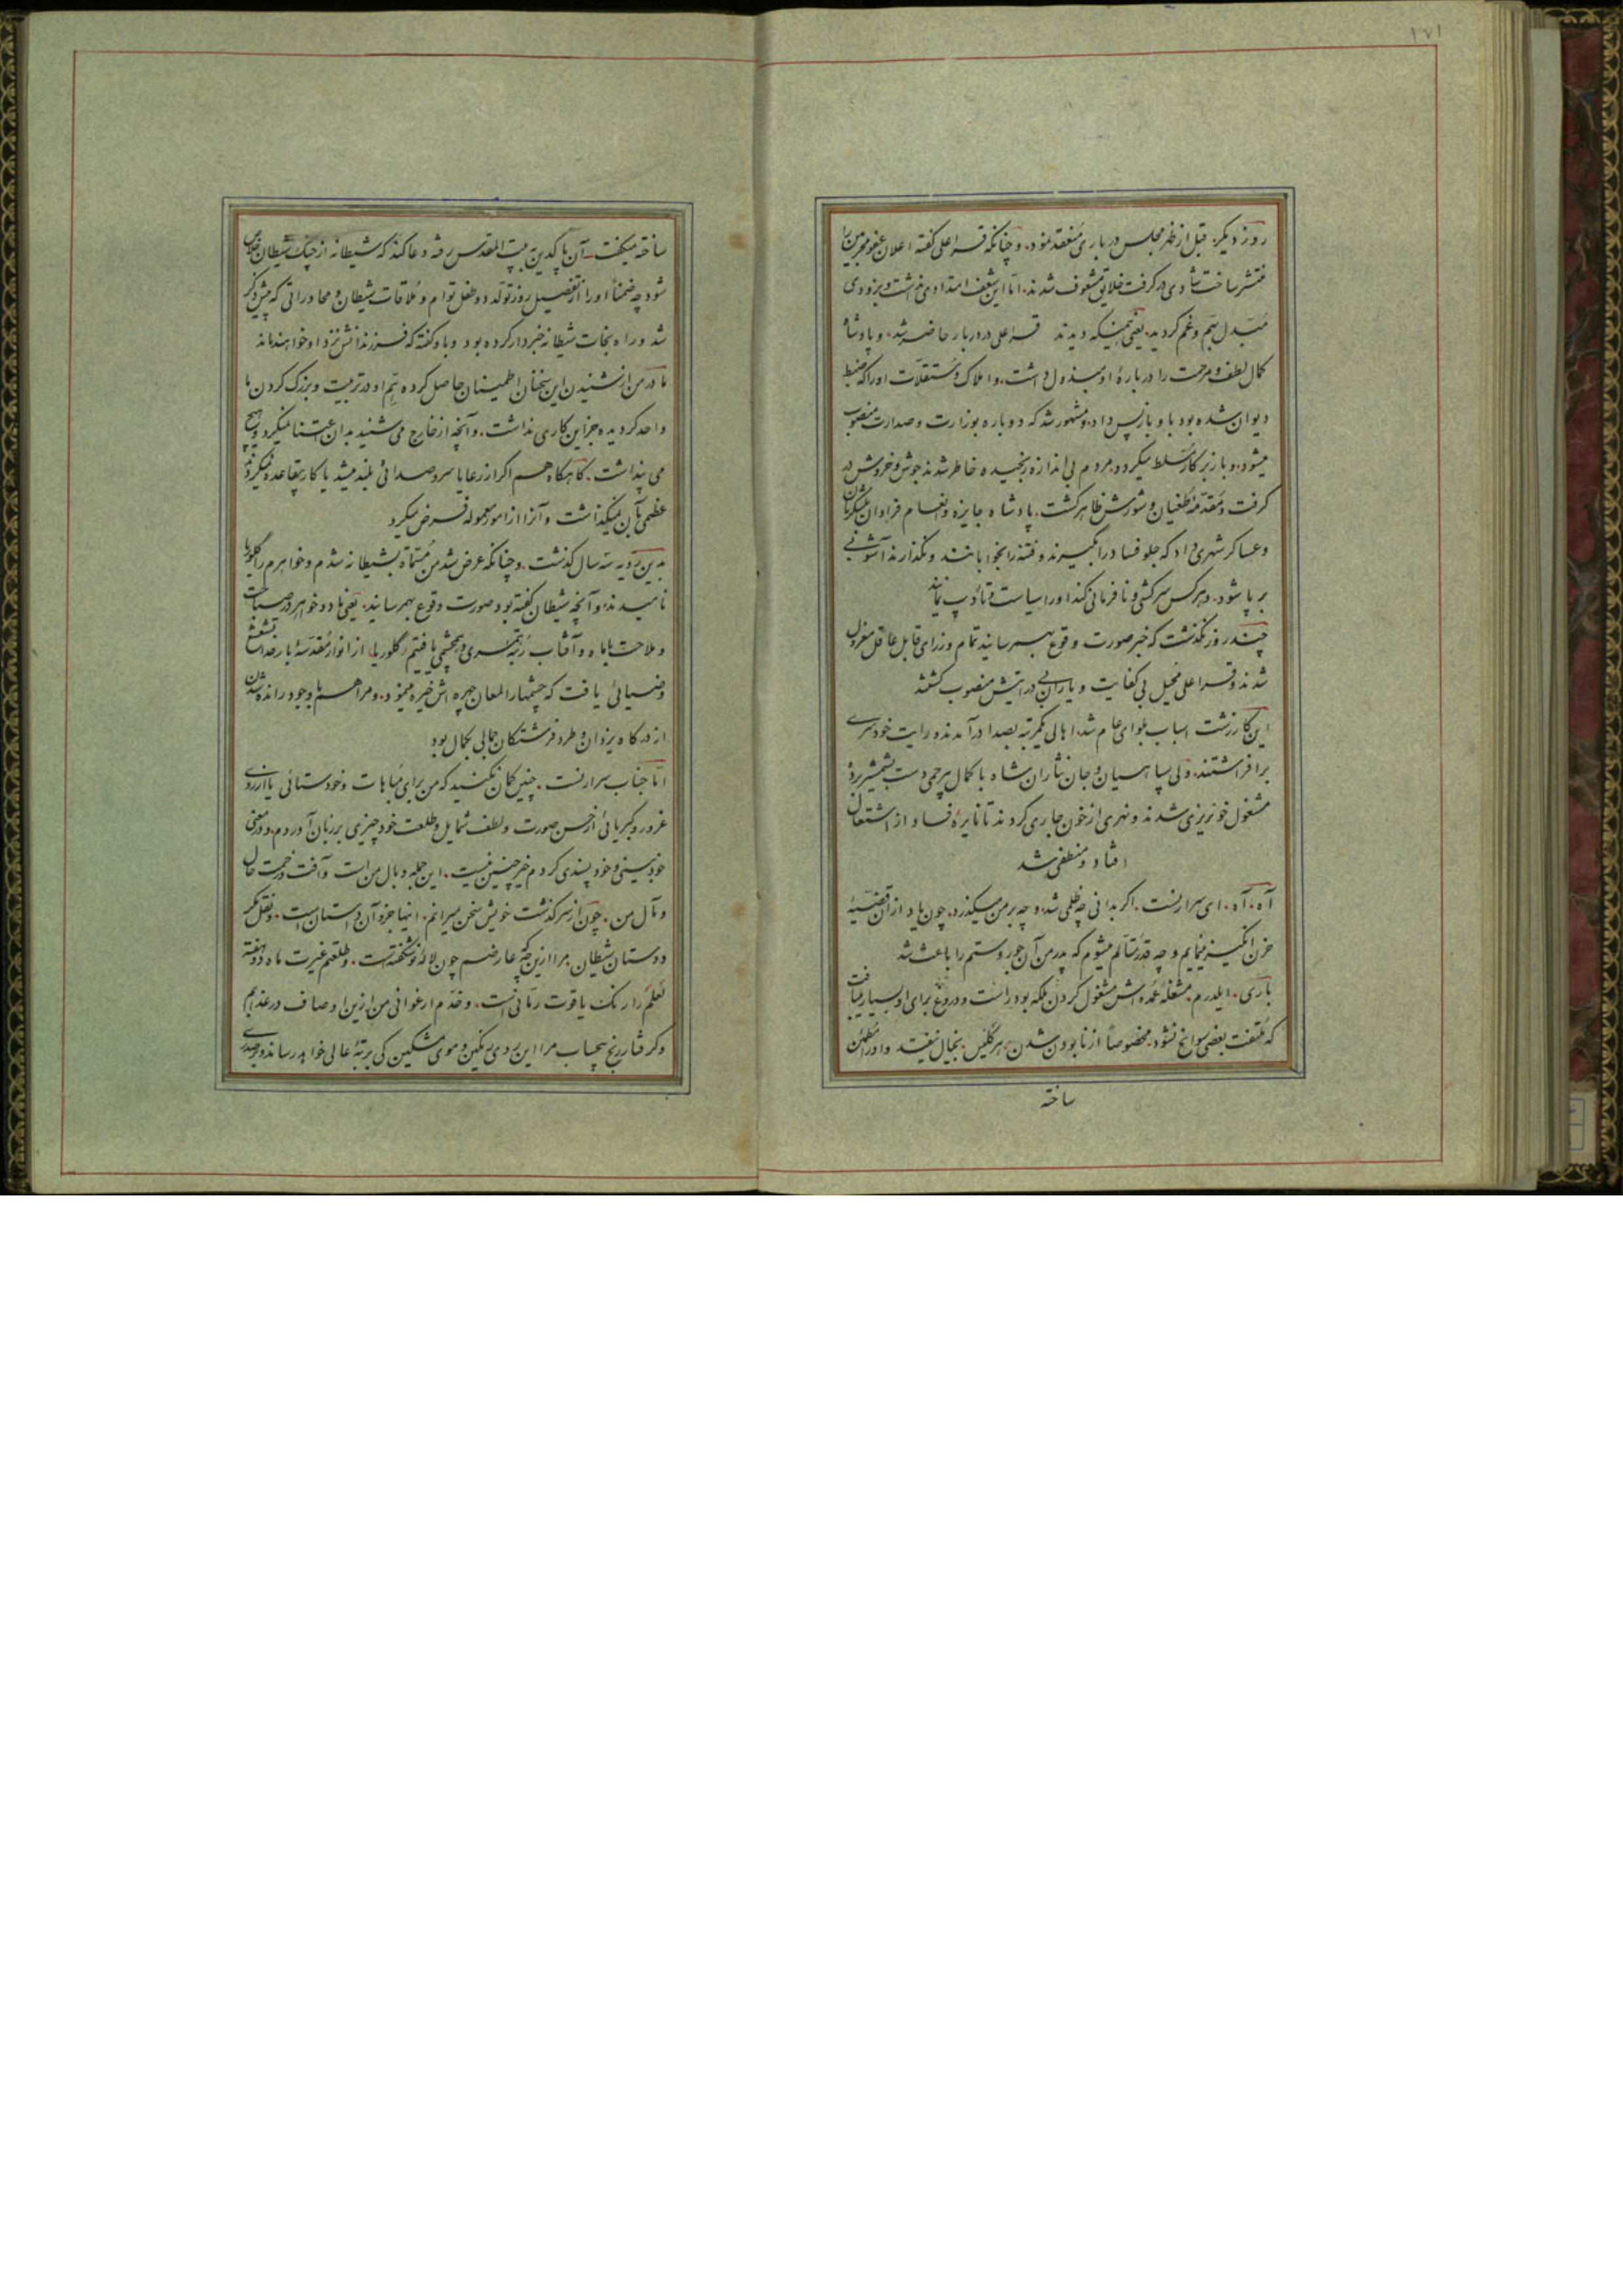 ۱۷۱
روز دیگر. قبل از ظهر مجلس درباری منعقد نمود. و چنانکه قسر اعلی گفته اعلان عفو مجرمین را
منتشر ساخت شادی در گرفت خلایق مشعوف شدند. اما این شعف امتدادی نداشت و بزودی
مبدل بهم و غم گردید. یعنی همینکه دیدند قسر اعلی در دربار حاضر شد. و پادشاه
کمال لطف و مرحمت را درباره او مبذول داشت. و املاک و مستقلات او را که ضبط
دیوان شده بود باو باز پس داد. و مشهور شد که دوباره بوزارت و صدارت منصوب
میشود. و باز بر کار مسلط میگردد. مردم بی اندازه رنجیده خاطر شدند جوش و خروش در
گرفت و مقدمه طغیان و شورش ظاهر گشت. پادشاه جایزه و انعام فراوان بلشگریان
و عساکر شهری داد که جلو فساد را بگیرند و فتنه را بخوابانند و نگذارند آشوبی
بر پا شود. و هر کس سرکشی و نافرمانی کند او را سیاست و تأدیب نمایند
چند روز نگذشت که خبر صورت وقوع بهم رسانید تمام وزرای قابل عاقل معزول
شدند و قسر اعلی محیل بی کفایت و یارانی درایتش منصوب گشتند
این کار زشت اسباب بلوای عام شد. اهالی یکمرتبه بصدا درآمدند و رایت خودسری
برافراشتند. ولی سپاهیان و جان نثاران شاه با کمال بیرحمی دست بشمشیر برده
مشغول خونریزی شدند و نهری از خون جاری کردند تا نایره فساد از اشتعال
افتاد و منطفی شد
آه. آه. ای سرارنست. اگر بدانی چه ظلمی شد. و چه بر من میگذرد. چون یاد از آن قضیه
حزن انگیز مینمایم و چه قدر متألم میشوم که پدر من آن جور و ستم را باعث شد
باری. ایلدرم. مشغله عمده اش مشغول کردن ملکه بود. راست و دروغ برای او بسیار میبافت
که ملتفت بعضی سوانح نشود. مخصوصاً از نابودن شدن هرگلیس بخیال نیفتد و او را مطمئن
ساخته
ساخته میگفت. آن پاکدین بیت المقدس رفته دعا کند که شیطانه از چنگ شیطان خلاص
شود چه ضمناً او را از تفصیل روز تولد دو طفل توأم و ملاقات شیطان و محاوراتی که پیش ذکر
شد و راه نجات شیطانه خبردار کرده بود و باو گفته که فرزندانش نزد او خواهند ماند
مادر من از شنیدن این سخنان اطمینان حاصل کرده هم او در تربیت و بزرگ کردن ما
واحد گردیده جز این کاری نداشت. و آنچه از خارج می شنید بدان اعتنا نمیکرد و هیچ
می پنداشت. گاهگاه هم اگر از رعایا سر و صدائی بلند میشد یا کار بیقاعده میکردند
عظمی بآن نمیگذاشت و آنرا از امور معموله فرض میکرد
بدین رویه سه سال گذشت. و چنانکه عرض شد من مسماة بشیطانه شدم و خواهرم را گلوریا
نامیدند. و آنچه شیطان گفته بود صورت وقوع بهم رسانید. یعنی ما دو خواهر در صباحت
و ملاحت با ماه و آفتاب رتبه همسری و همچشمی یافتیم. گلوریا. از انوار مقدسه بارخدا تشعشع
و ضیائی یافت که چشمها را لمعان چهره اش خیره مینمود. و مرا هم با وجود رانده شدن
از درگاه یزدان و طرد فرشتگان جمالی بکمال بود
اما جناب سرارنست. چنین گمان نکنید که من برای مباهات و خودستائی یا از روی
غرور و کبریائی از حسن صورت و لطف شمایل و طلعت خود چیزی بر زبان آوردم. و در معنی
خودبینی و خودپسندی کردم خیر چنین نیست. این جمله وبال من است و آفت و زحمت حال
و مآل من. چون از سرگذشت خویش سخن میرانم. اینها جزو آن داستان است. و نقل مکر
و دستان شیطان. مرا ازین چه که عارضم چون لاله نو شکفته است. و طلعتم غیرت ماه دو هفته
لعلم را رنگ یاقوت رمانی است. و خدم ارغوانی من ازین اوصاف در عذابم
و گرفتار رنج بیحساب مرا این روی رنگین و موی مشکین کی بمرتبه عالی خواهد رساند و بر صدری